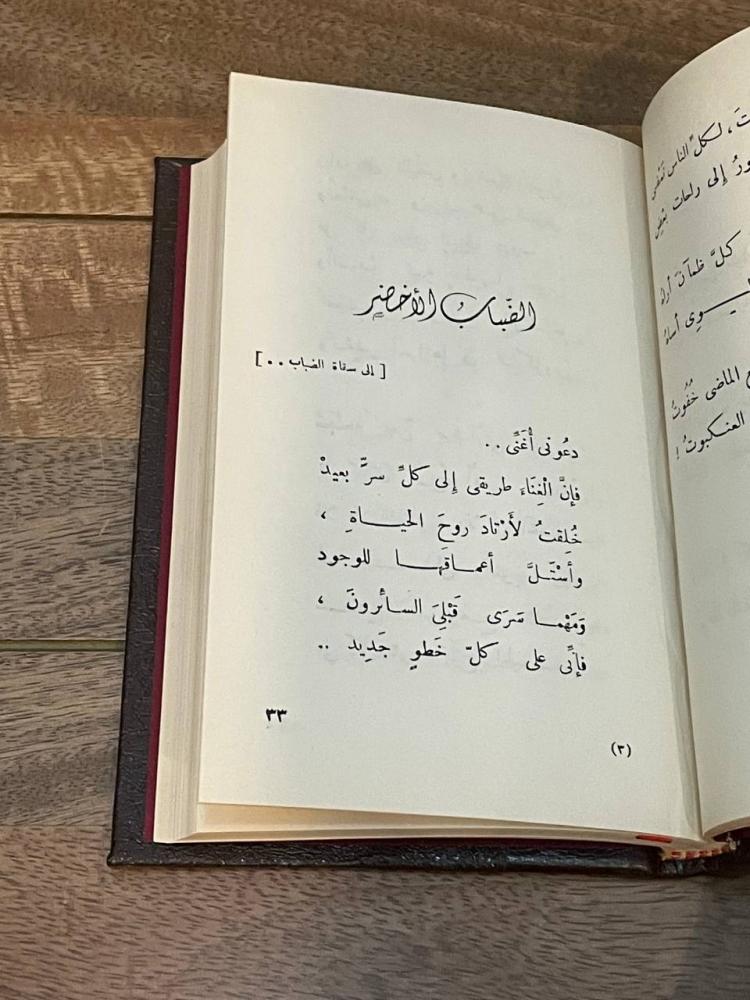 الضّبابُ الأخضر
[ إلى سقاة الضباب . . ]
دعُونى أُغَنِّى . .
فإنَّ الْغِنَاءَ طريقى إِلى كلِّ سرّ بعيدْ
خُلِقتُ لأَرْتادَ روحَ الحياةِ ،
وأسْتَلَّ أعماقَها للوجود
وَمَهْما سَرَى قَبْلِىَ السائرونَ ،
فإنِّى على كلّ خَطوٍ جَدِيد ..
٣٣
(٣)
ـتَ ، لـكلِّ الناس تَمْضى
إلى راحات
كلَّ ظمآنَ
الماضى خُفُوتُ
العنـكبوتُ !